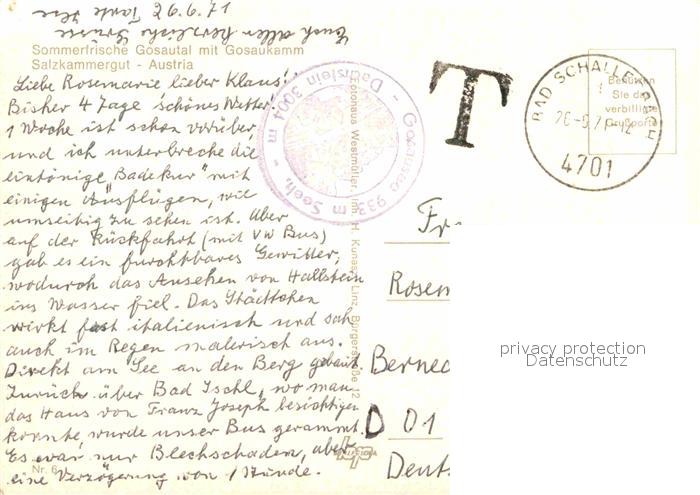 26.6.71
Euch allen herzliche Grüsse Tante Ilse
Sommerfrische Gosautal mit Gosaukamm
Salzkammergut - Austria
Liebe Rosemarie lieber Klaus!
Bisher 4 Tage schönes Wetter!
1 Woche ist schon vorüber
und ich unterbreche die
eintönige "Badekur" mit
einigen Ausflügen, wie
umseitig zu sehen ist. Aber
auf der Rückfahrt (mit VW Bus)
gab es ein furchtbares Gewitter,
wodurch das Ansehen von Hallstein
ins Wasser fiel. Das Städtchen
wirkt fast italienisch und sah
auch im Regen malerisch aus.
Direkt am See an den Berg gebaut.
Zurück über Bad Ischl, wo man
das Haus von Franz Joseph besichtigen
konnte, wurde unser Bus gerammt.
Es war nur Blechschaden, aber
eine Verzögerung von 1 Stunde.
Nr. 6
Gosausee 933 m Seeh. - Dachstein 3004 m -
Fotohaus Westmüller, Inh. H. Kunast, Linz, Bürgerstraße 12
T
BAD SCHALLERBACH
26-6.71-12
4701
Benützen
Sie das
verbilligte
Grußporto
Fr
Rosem
Bernec
D 01
Deuts
privacy protection
Datenschutz